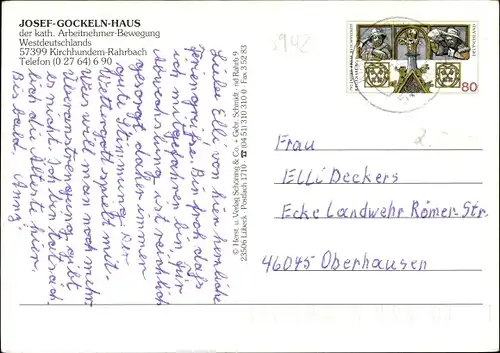 JOSEF-GOCKELN-HAUS
der kath. Arbeitnehmer-Bewegung
Westdeutschlands
57399 Kirchhundem-Rahrbach
Telefon (0 27 64) 6 90
Liebe Elli von hier herzliche
Feriengrüße. Bin froh daß
ich mitgefahren bin, für
Abwechslung ist reichlich
gesorgt, daher immer
gute Stimmung. Der
Wettergott spielt mit.
Was will man noch mehr
Überanstrengung gibt
es nicht. Ich bin tatsäch-
lich die Älteste hier.
Bis bald, Änny
© Herst. u. Verlag Schöning & Co. + Gebr. Schmidt
23506 Lübeck · Postfach 1710 · ☎ (04 51) 310 310 0 · Fax 3 52 83
Rahrb 9
80
DEUTSCHLAND
5942
2.-
Frau
Elli Deckers
Ecke Landwehr Römer-Str.
46045 Oberhausen